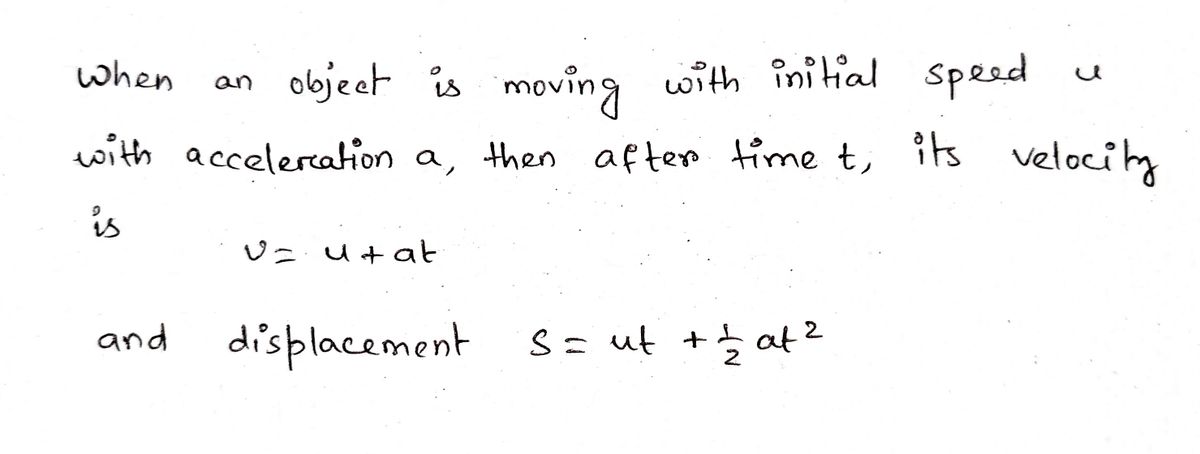 when an object is moving with initial speed u
with acceleration a, then after time t, its velocity
is
v = u + at
and displacement s = ut + ½ at²